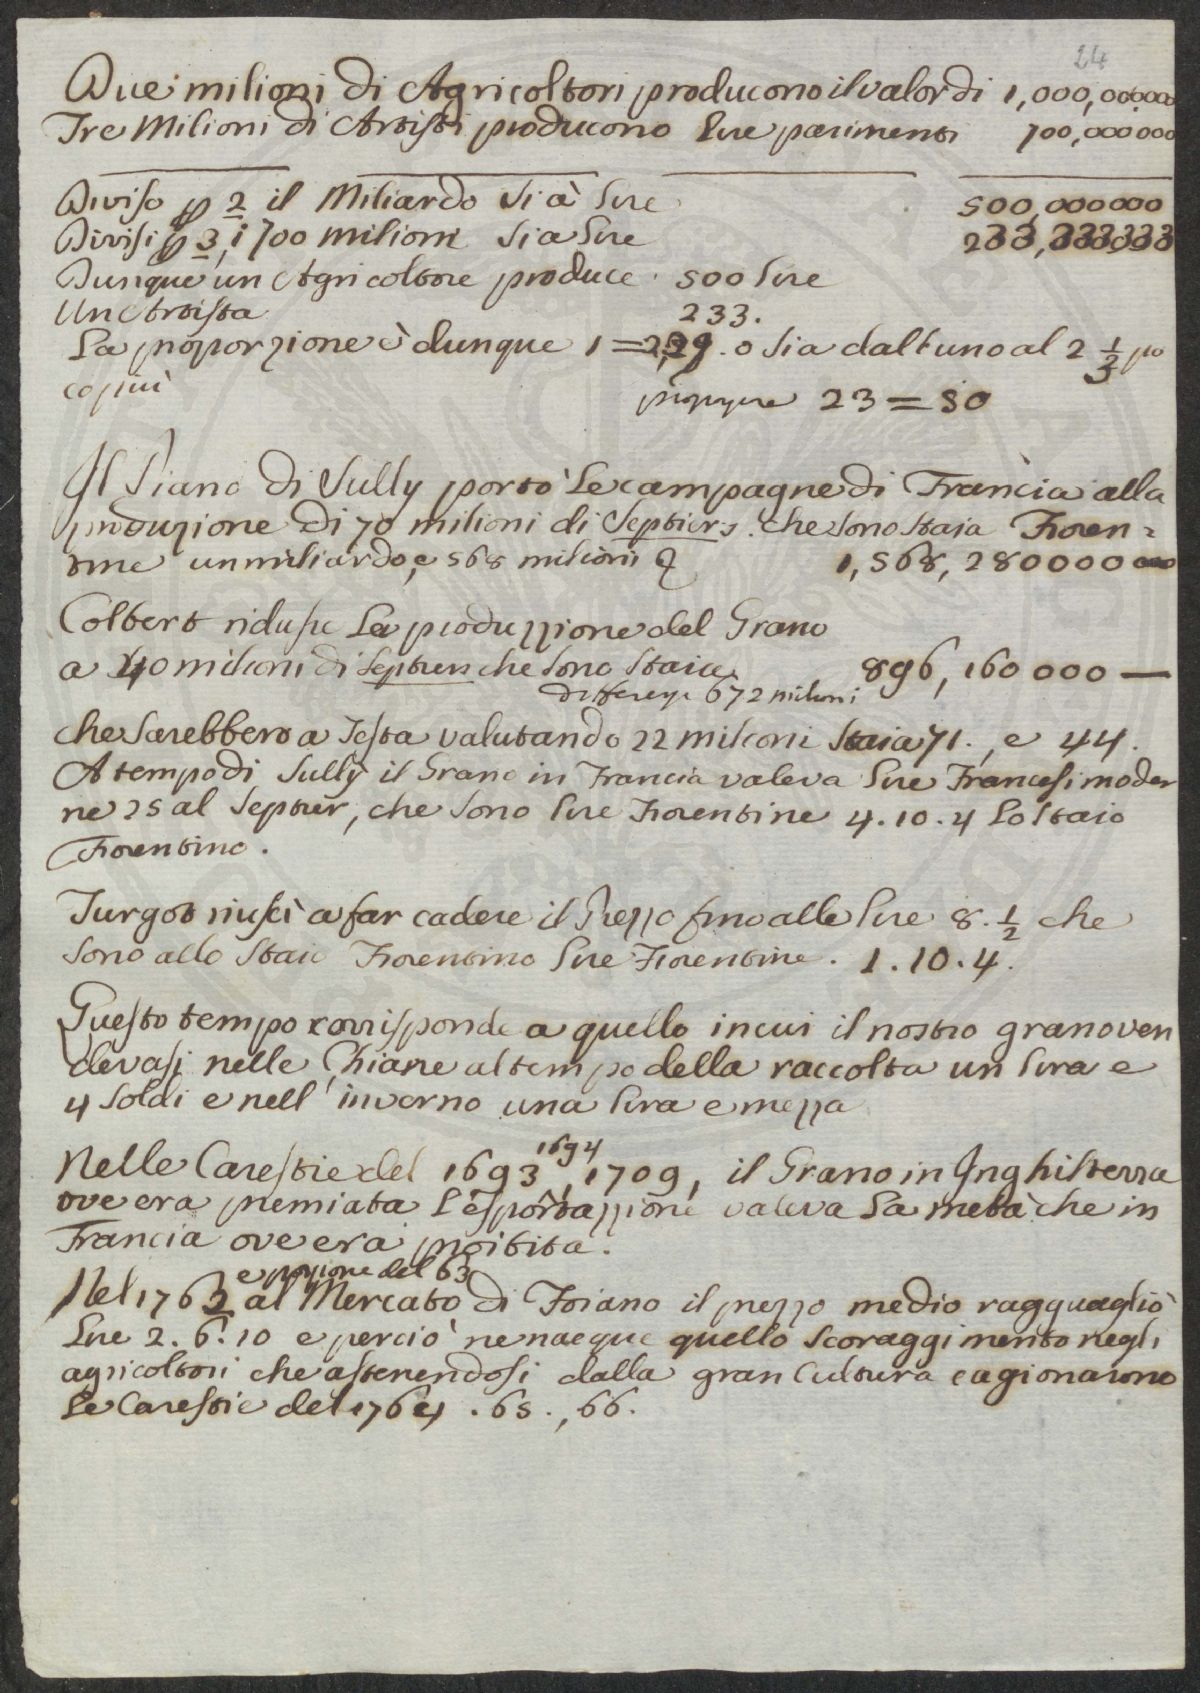 24
Due milioni di Agricoltori producono il valor di 1,000,000000
Tre Milioni di Artisti producono lire parimenti 700,000000
Diviso p 2 il Miliardo si à lire 500,000000
Divisi p 3, i 700 milioni si a lire 233,333333
Dunque un Agricoltore produce 500 lire
Un Artista 233.
La proporzione è dunque 1 = . o sia dall uno al 2 1/3 po
co più
23 = 50
Il Piano di Sully portò le campagne di Francia alla
produzione di 70 milioni di Septiers. che sono staia Fioren=
tine un miliardo, e 568 milioni & 1,568,280000
Colbert riduse la produzzione del Grano
a 40 milioni di Septiers che sono staia 896,160000 —
differenza 672 milioni
che sarebbero a Testa valutando 22 milioni staia 71., e 44.
A tempo di Sully il Grano in Francia valeva lire Francesi moder
ne 25 al Septier, che sono lire Fiorentine 4.10.4 lo staio
Fiorentino.
Turgot riuscì a far cadere il Prezzo fino alle lire 8. 1/2 che
sono allo staio Fiorentino lire Fiorentine. 1.10.4.
Questo tempo corrisponde a quello in cui il nostro grano ven
devasi nelle Chiane al tempo della raccolta un lira e
4 soldi e nell' inverno una lira e mezza
Nelle Carestie del 1693, 1694 1709, il Grano in Inghilterra
ove era premiata l'esportazzione valeva la metà che in
Francia ove era proibita.
e porzione del 63
Nel 1762 al Mercato di Foiano il prezzo medio ragguagliò
lire 2.6.10 e perciò ne nacque quello scoraggimento negli
agricoltori che astenendosi dalla gran Cultura cagionarono
le Carestie del 1764. 65., 66.